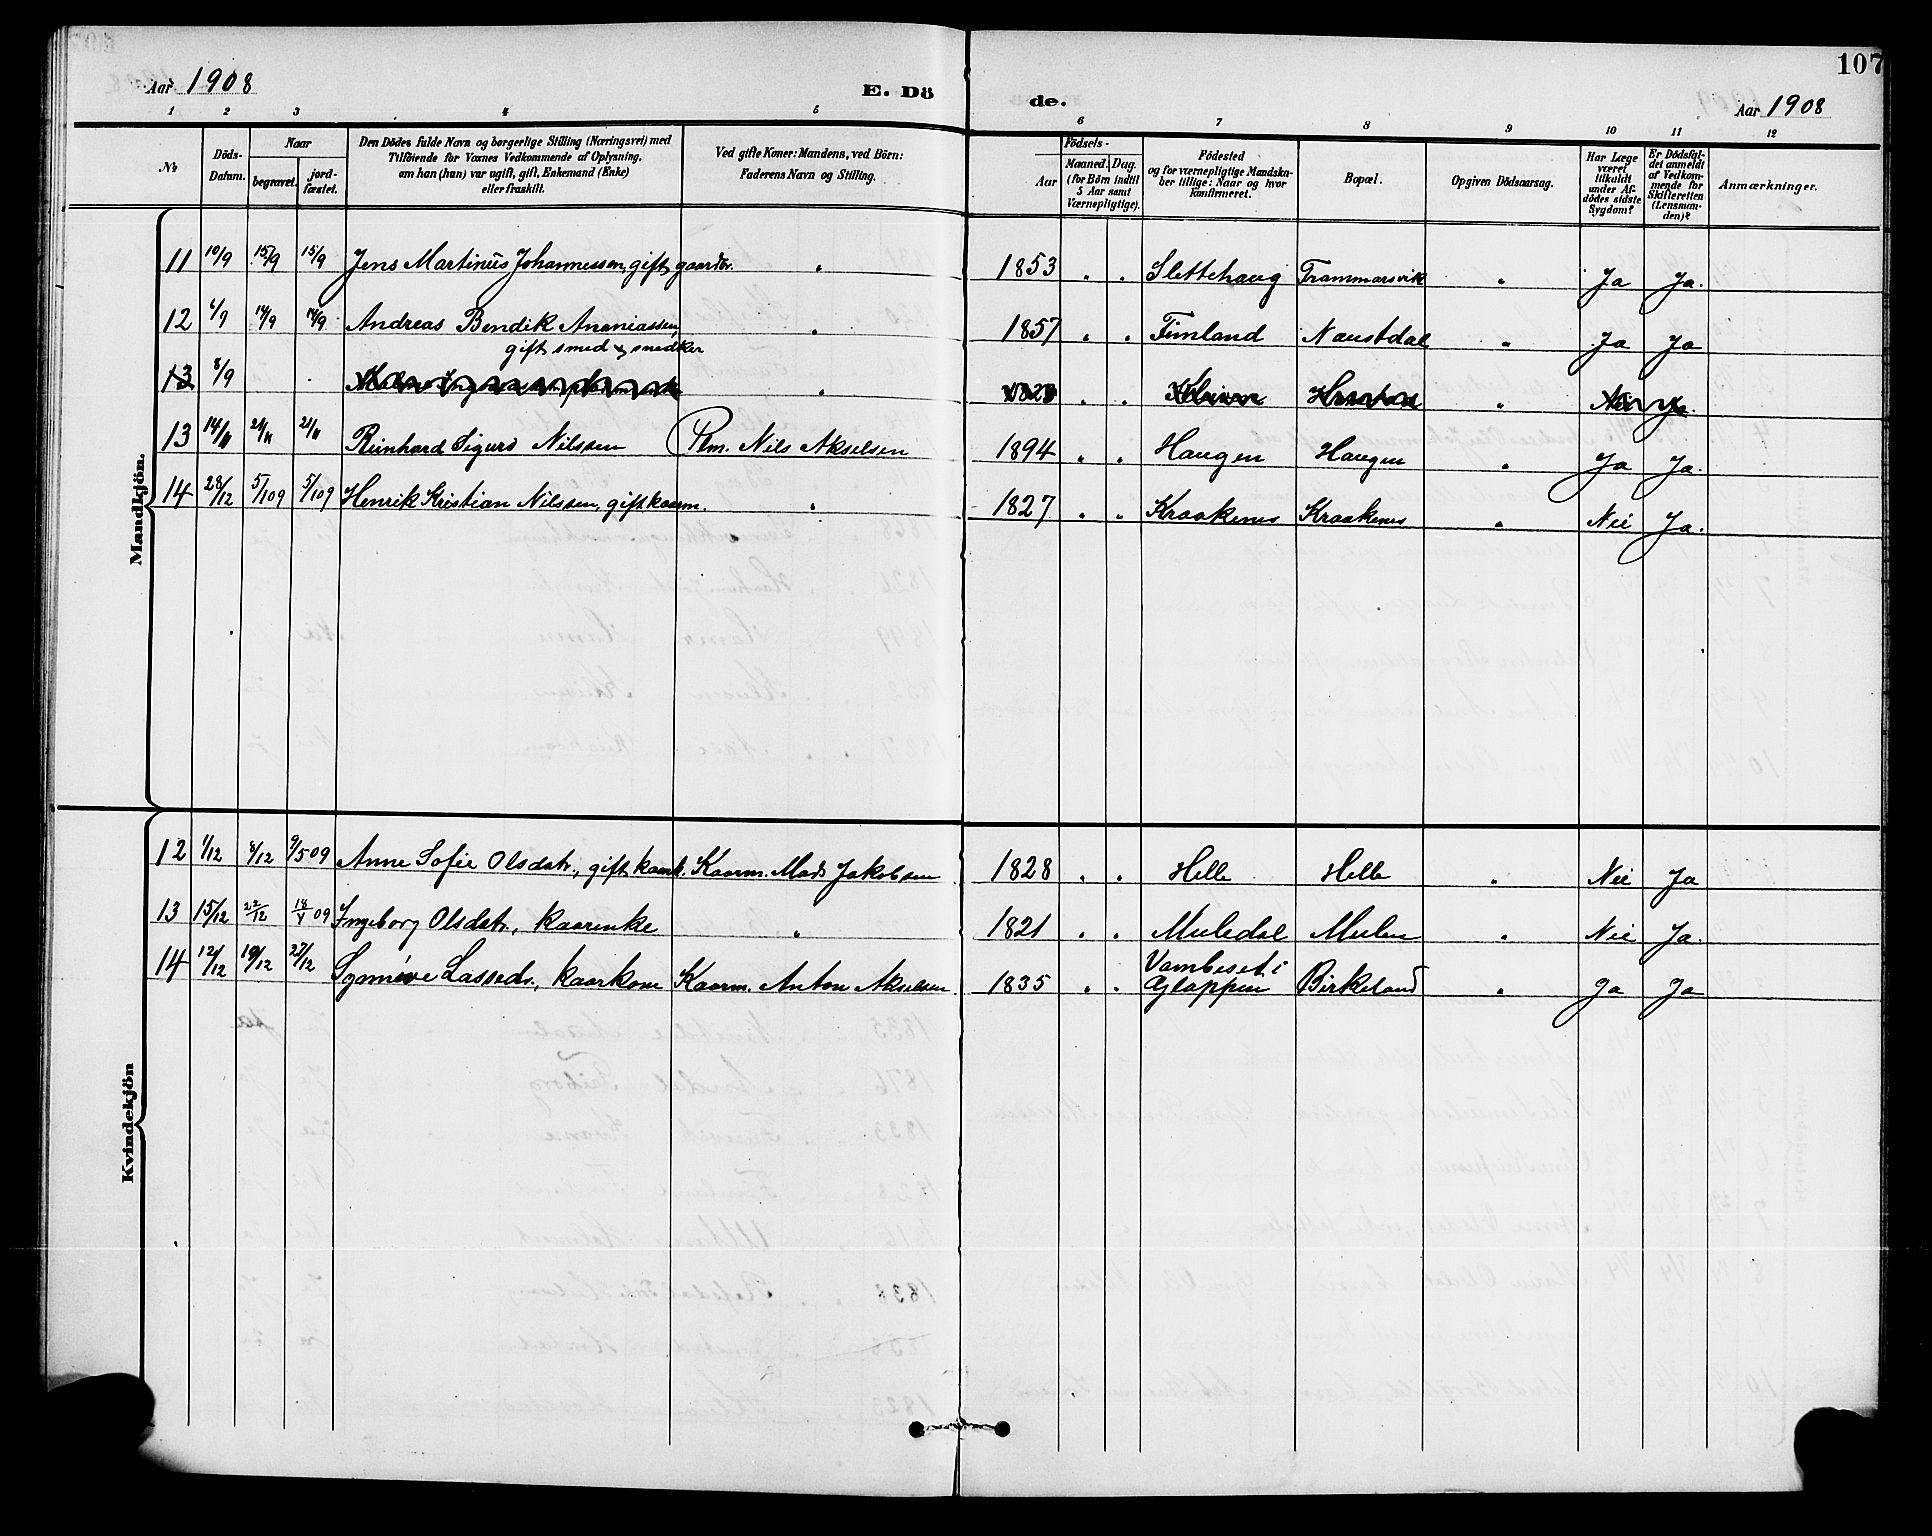 107
Aar 1908 E. Dö de. Aar 1908
1 2 3 4 5 6 7 8 9 10 11 12
No
Döds-
Datum.
Naar
begravet.
jord-
fæstet.
Den Dödes fulde Navn og borgerlige Stilling (Næringsvei) med
Tilföiende for Voxnes Vedkommende af Oplysning,
om han (hun) var ugift, gift, Enkemand (Enke)
eller fraskilt.
Ved gifte Koner: Mandens, ved Börn:
Faderens Navn og Stilling.
Födsels-
Aar
Maaned. Dag.
(for Börn indtil
5 Aar samt
Værnepligtige).
Födested
og for værnepligtige Mandska-
ber tillige: Naar og hvor
konfirmeret.
Bopæl.
Opgiven Dödsaarsag.
Har Læge
været
tilkaldt
under Af-
dödes sidste
Sygdom?
Er Dödsfal-
det anmeldt
af Vedkom-
mende for
Skifteretten
(Lensman-
den)?
Anmærkninger.
Mandkjön.
11 10/9 15/9 15/9 Jens Martinus Johannessen, gift gaardbr. " 1853 " " Slettehaug Frammarsvik " Ja Ja.
12 6/9 14/9 14/9 Andreas Bendik Ananiassen, " 1857 " " Timland Naustdal " Ja Ja
gift smed & snedker
13 8/9 "
13 14/11 21/11 21/11 Reinhard Sigurd Nilssen Plm. Nils Akselsen 1894 " " Haugen Haugen " Ja Ja.
14 28/12 5/1 09 5/1 09 Henrik Kristian Nilssen, gift kaarm. " 1827 " " Kraakenes Kraakenes " Nei Ja.
Kvindekjön
12 1/12 8/12 9/5 09 Anne Sofie Olsdatr., gift kaark. Kaarm. Mads Jakobsen 1828 " " Helle Helle " Nei Ja
13 15/12 22/12 18/V 09 Ingeborg Olsdatr., kaarenke " 1821 " " Muledal Mulen " Nei Ja.
14 12/12 19/12 27/12 Synnéve Lassedr., kaarkone Kaarm. Anton Akselsen 1835 " " Vambeset i
Gloppen Birkeland " Ja Ja